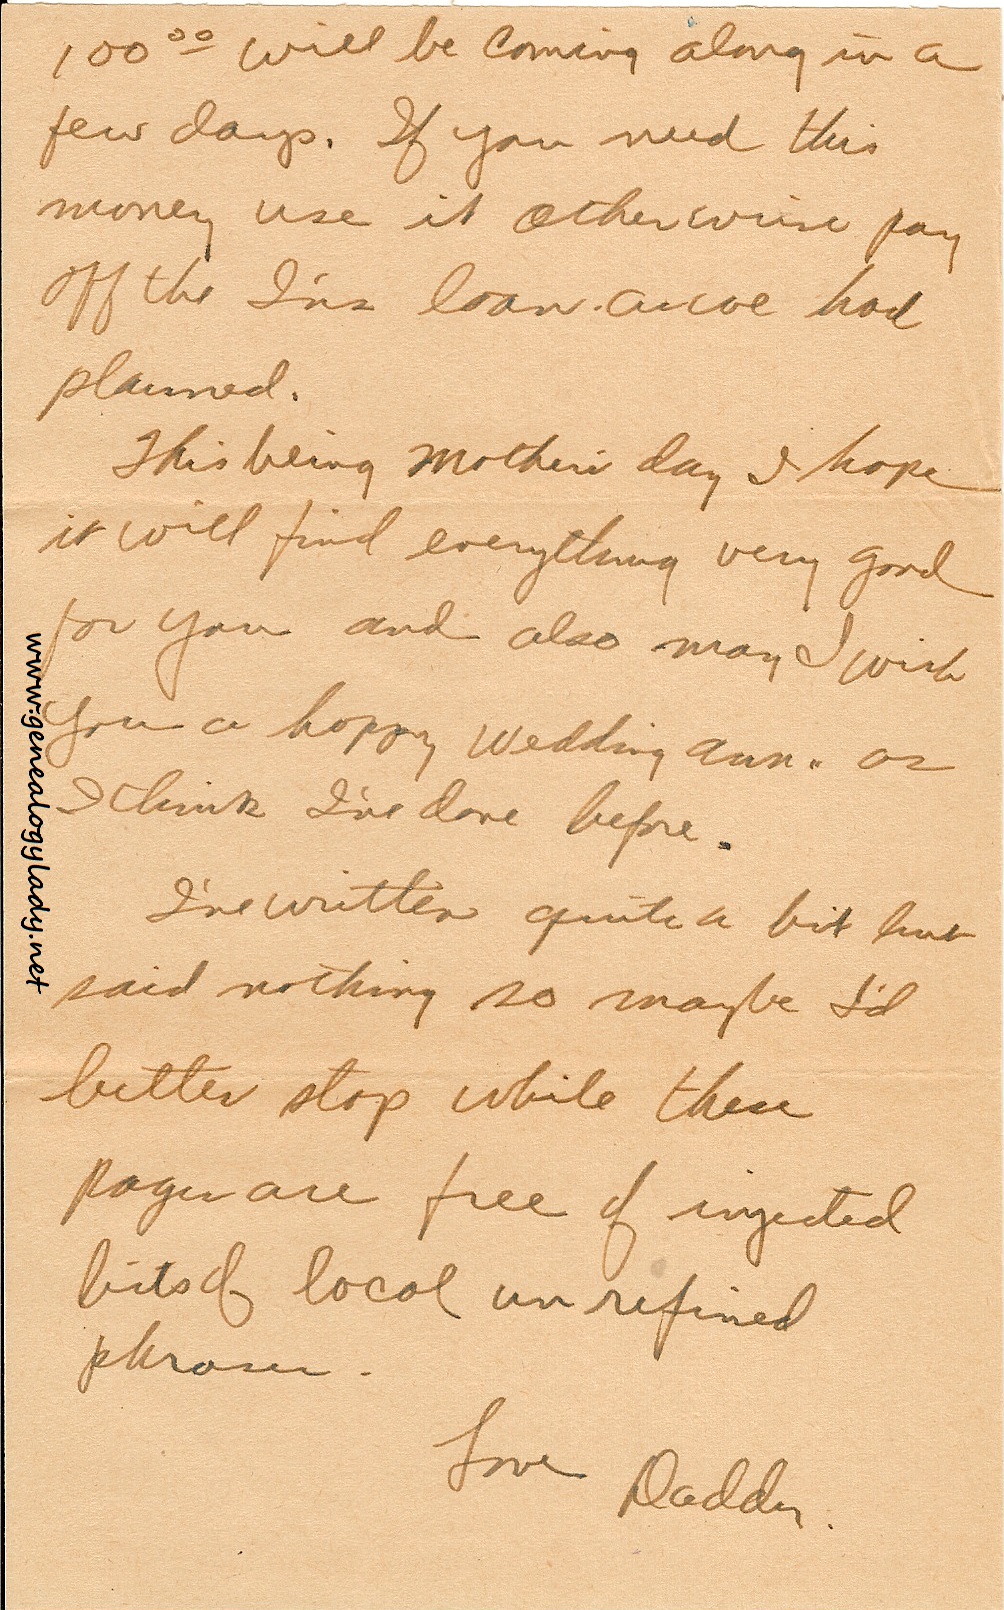 100.00 will be coming along in a
few days. If you need this
money use it otherwise pay
off the Ins loan. as we had
planned.
This being Mothers day I hope
it will find everything very good
for you and also may I wish
you a happy wedding ann. as
I think I've done before.
I've written quite a bit but
said nothing so maybe I'd
better stop while these
pages are free of injected
bits of local unrefined
phrases.
Love Daddy.
www.genealogylady.net